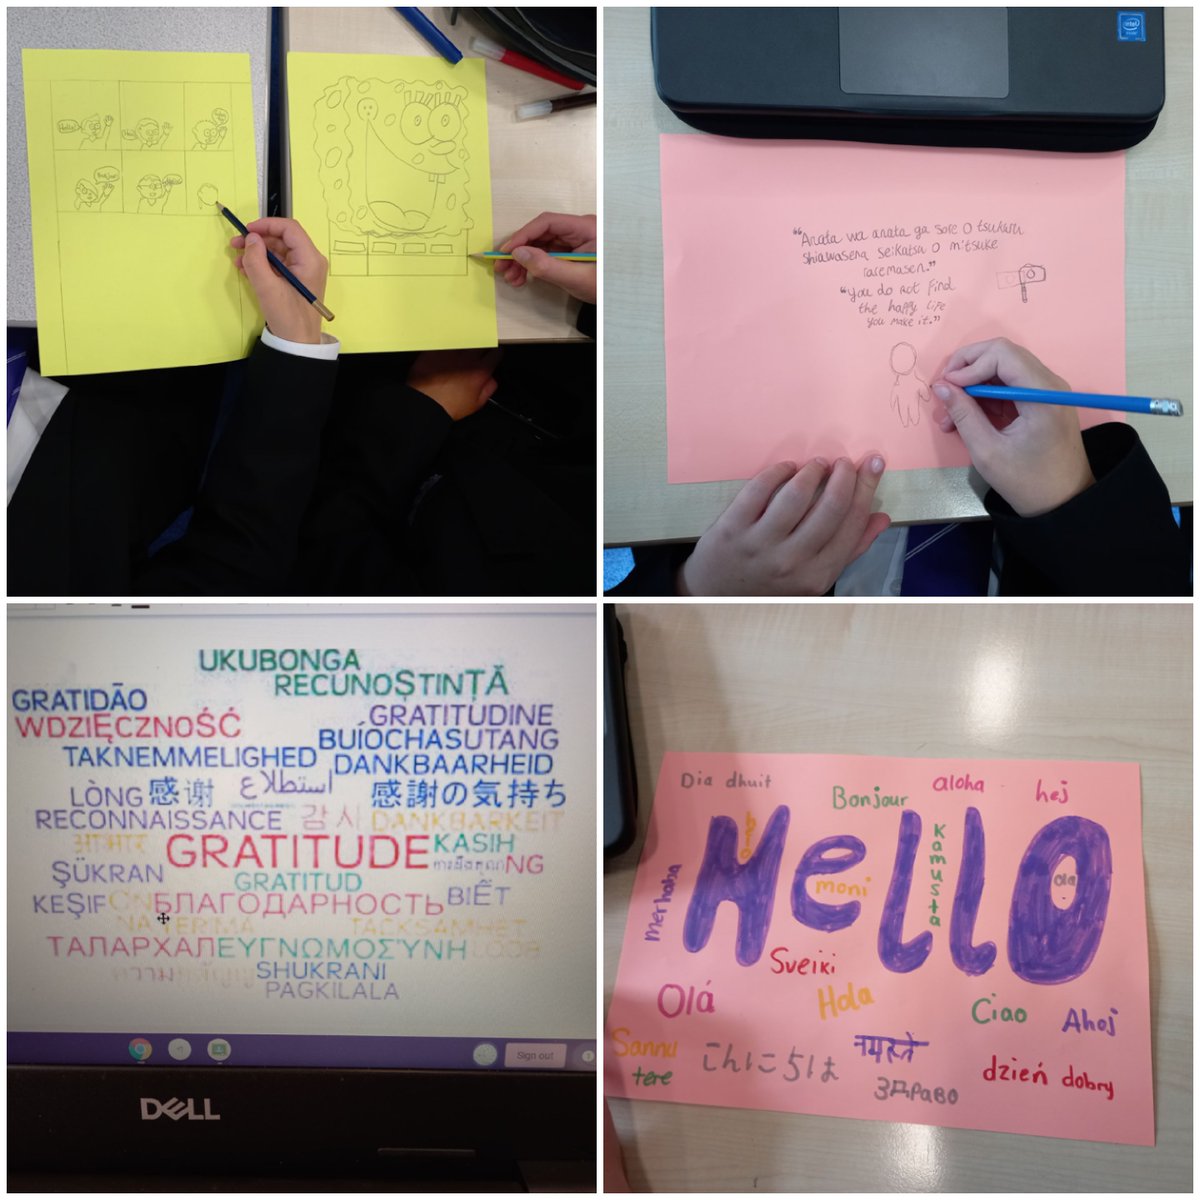 Hello!
Hola!
Bonjour
intel
"Anata wa anata ga sore o tsukuru
Shiawasena Seikatsu o mitsuke
raremasen."
"You do not find
the happy life
you make it."
UKUBONGA
RECUNOȘTINȚĂ
GRATIDÃO
WDZIĘCZNOŚĆ
GRATITUDINE
BUÍOCHAS UTANG
TAKNEMMELIGHED DANKBAARHEID
LÒNG 感谢 استطلاع 感謝の気持ち
RECONNAISSANCE 감사 DANKBARKEIT
आभार GRATITUDE KASIH
ŞÜKRAN NG
GRATITUD
KEŞIF ƠN БЛАГОДАРНОСТЬ BIẾT
NA TERIMA TACKSAMHET
ТАЛАРХАЛ ΕΥΓΝΩΜΟΣΎΝΗ LOOB
SHUKRANI
PAGKILALA
Sign out
DELL
Dia dhuit
Bonjour
aloha
hej
Hello
merhaba
moni
Kamusta
ola
Sveiki
Olá
Hola
Ciao
Ahoj
Sannu
tere
こんにちは
नमस्ते
Здраво
dzień dobry